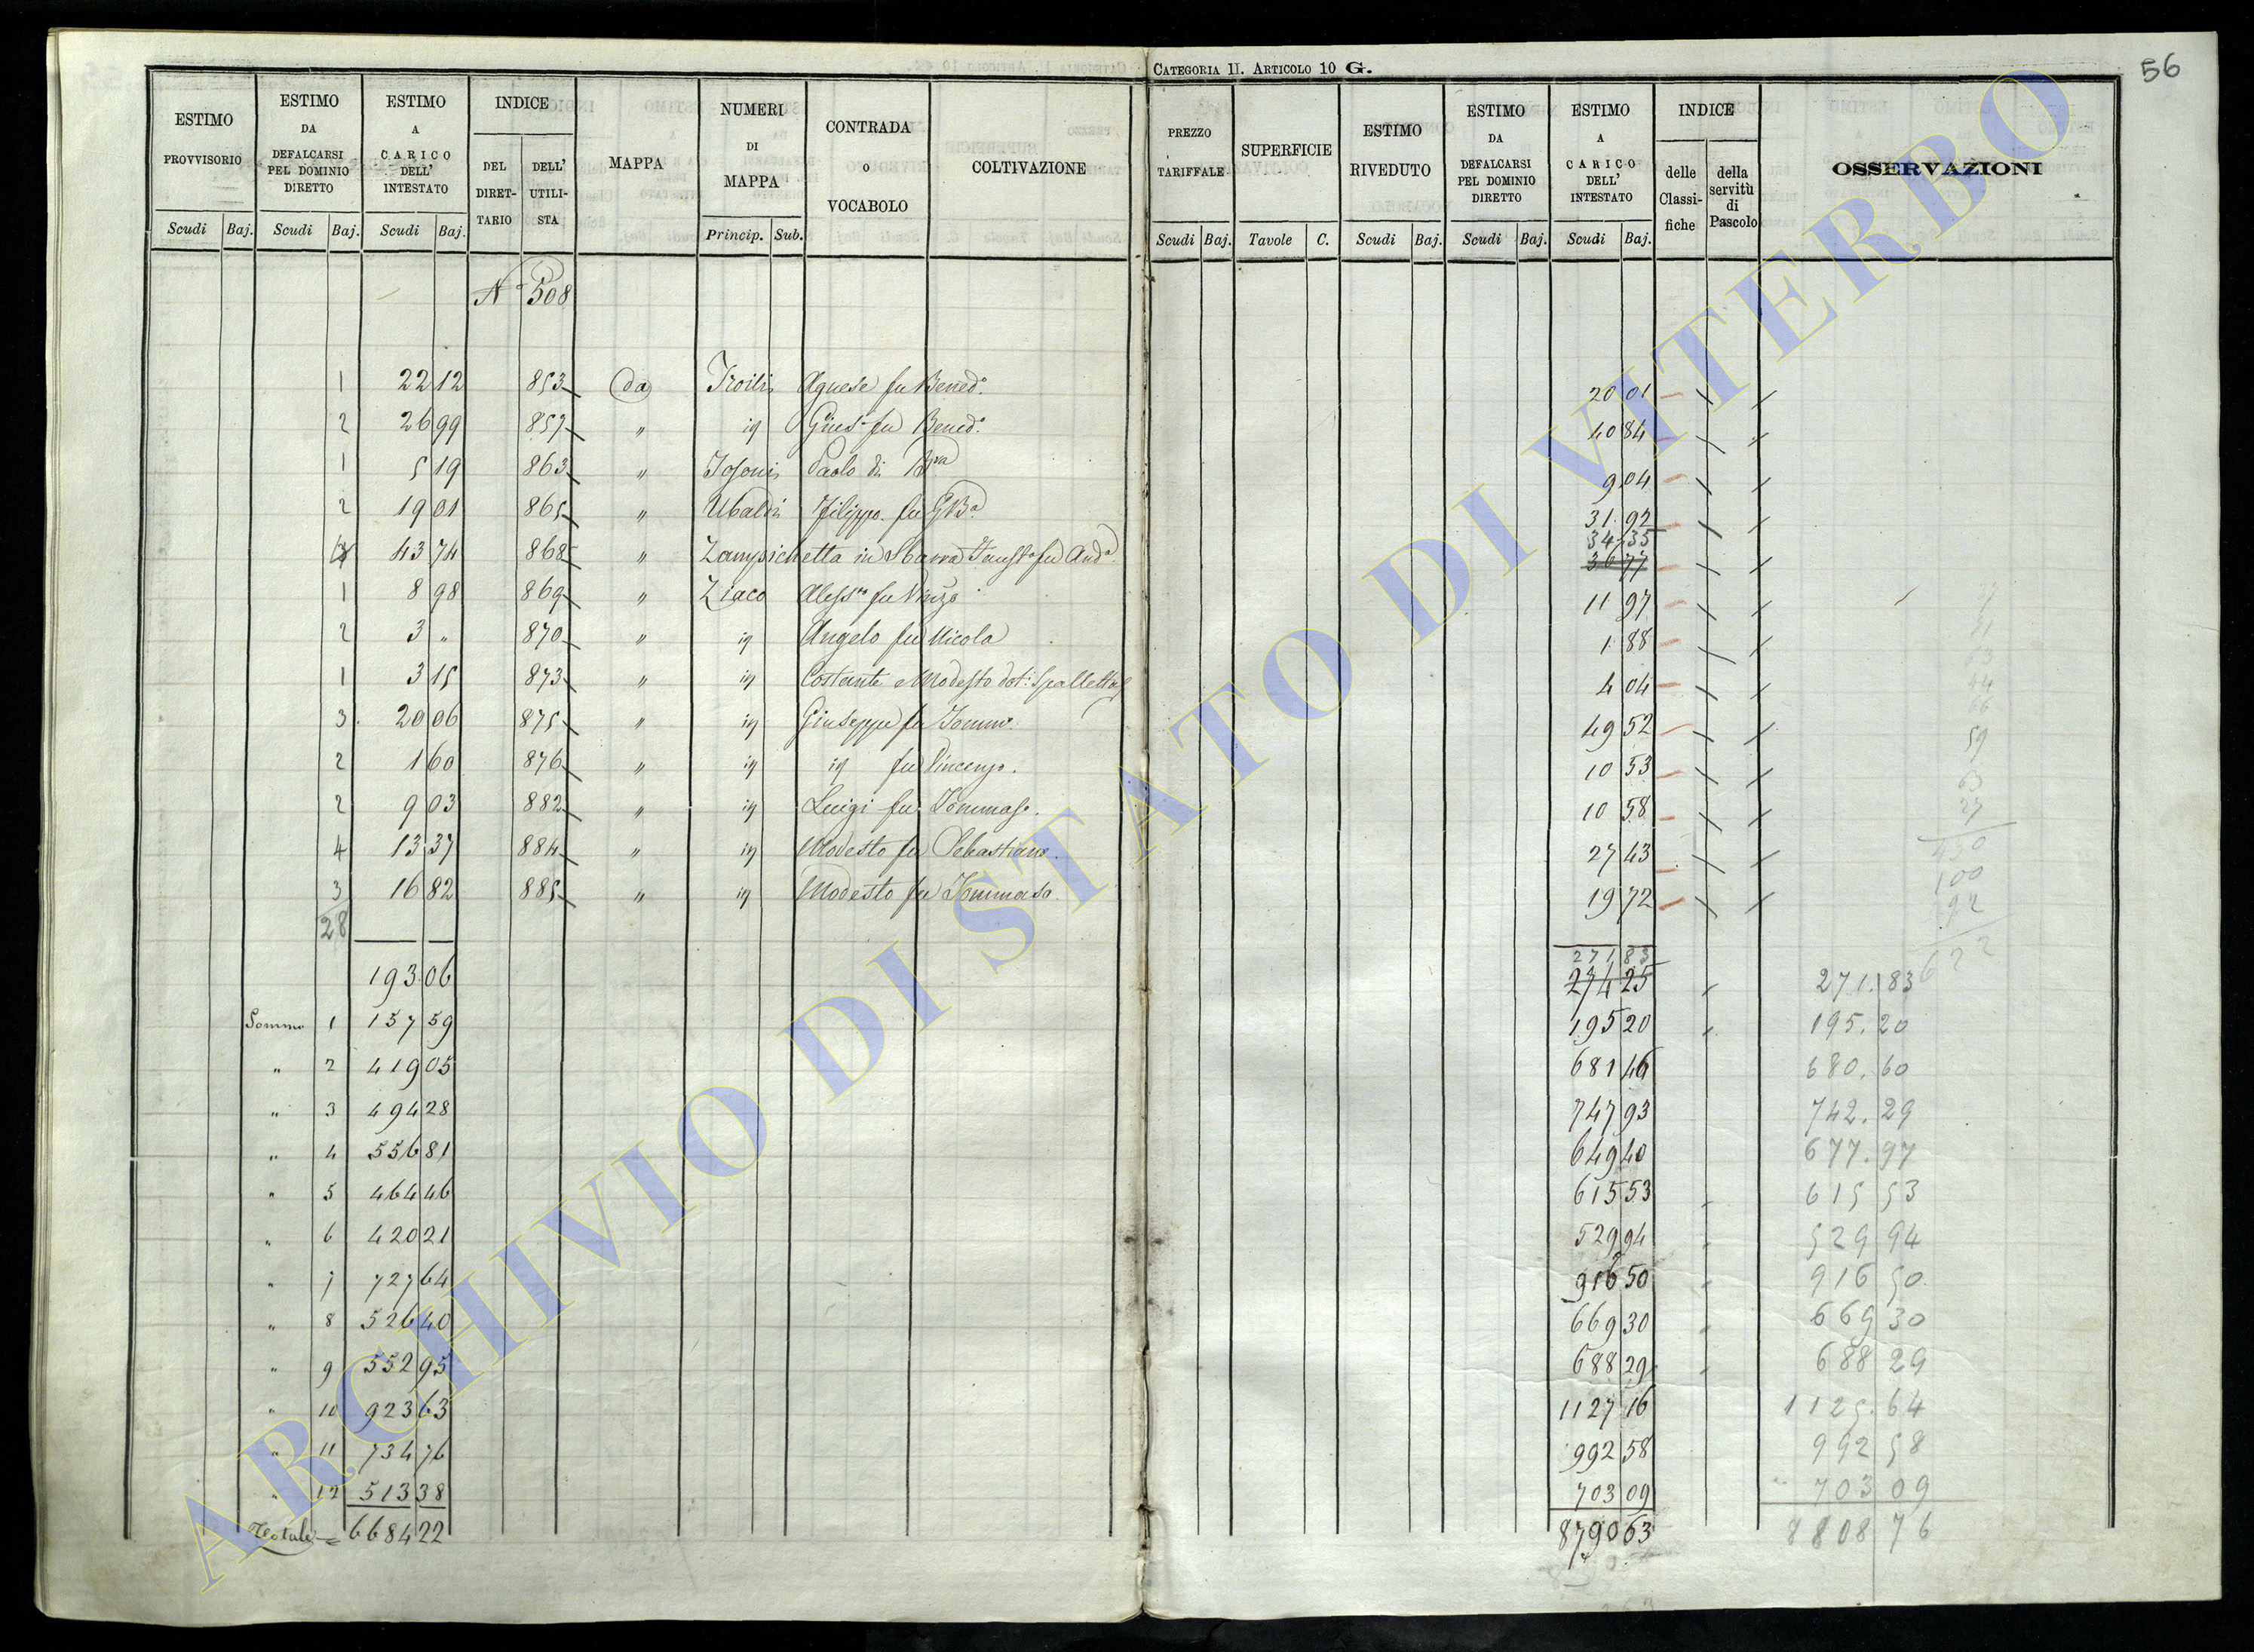 56
CATEGORIA II. ARTICOLO 10 G.
ESTIMO PROVVISORIO
ESTIMO DA DEFALCARSI PEL DOMINIO DIRETTO
ESTIMO A CARICO DELL' INTESTATO
INDICE
DEL DIRETTARIO
DELL' UTILISTA
MAPPA
NUMERI DI MAPPA
CONTRADA o VOCABOLO
COLTIVAZIONE
PREZZO TARIFFALE
SUPERFICIE
ESTIMO RIVEDUTO
ESTIMO DA DEFALCARSI PEL DOMINIO DIRETTO
ESTIMO A CARICO DELL' INTESTATO
INDICE
delle Classifiche
della servitù di Pascolo
OSSERVAZIONI
Scudi Baj. Scudi Baj. Scudi Baj. Princip. Sub. Scudi Baj. Tavole C. Scudi Baj. Scudi Baj. Scudi Baj.
N° 508
1 22 12 853 da Troili Agnese fu Bened.° 20 01
2 26 99 857 " id Gius.e fu Bened.° 40 84
1 5 19 863 " Paolo di 9 04
2 19 01 865 " Ubaldi Filippo fu GBa 31.92
34 35
43 74 868 " Zampichetta in Sbarra fu And.a 36 77
1 8 98 869 " Ziaco Aless.ro fu Vinzo 11 97
2 3 " 870 " id Angelo fu Nicola 1.88
1 3 15 873 " id Costante e Modesto dot: Spalletta 4 04
3 20 06 875 " id Giuseppe fu Tomm.o 49 52
2 1 60 876 " id id fu Vincenzo. 10 53
2 9 03 882 " id Luigi fu Tommaso. 10 58
4 13 37 884 " id Modesto fu Sebastiano. 27 43
3 16 82 885 " id Modesto fu Tommaso. 19 72
28
271 83
193 06 274 25 271.83
Somma 1 157 59 195 20 195.20
" 2 419 05 681 46 680.60
" 3 494 28 747 93 742.29
" 4 556 81 649 40 677.97
" 5 464 46 615 53 615 53
" 6 420 21 529 94 529 94
" 7 727 64 916 50 916 50
" 8 526 40 669 30 669 30
" 9 552 95 688 29 688 29
" 10 923 63 1127 16 1125.64
" 11 734 76 992 58 992 58
" 12 513 38 703 09 703 09
Totale = 6684 22 8790 63 8808 76
59
63
27
430
100
92
622
ARCHIVIO DI STATO DI VITERBO